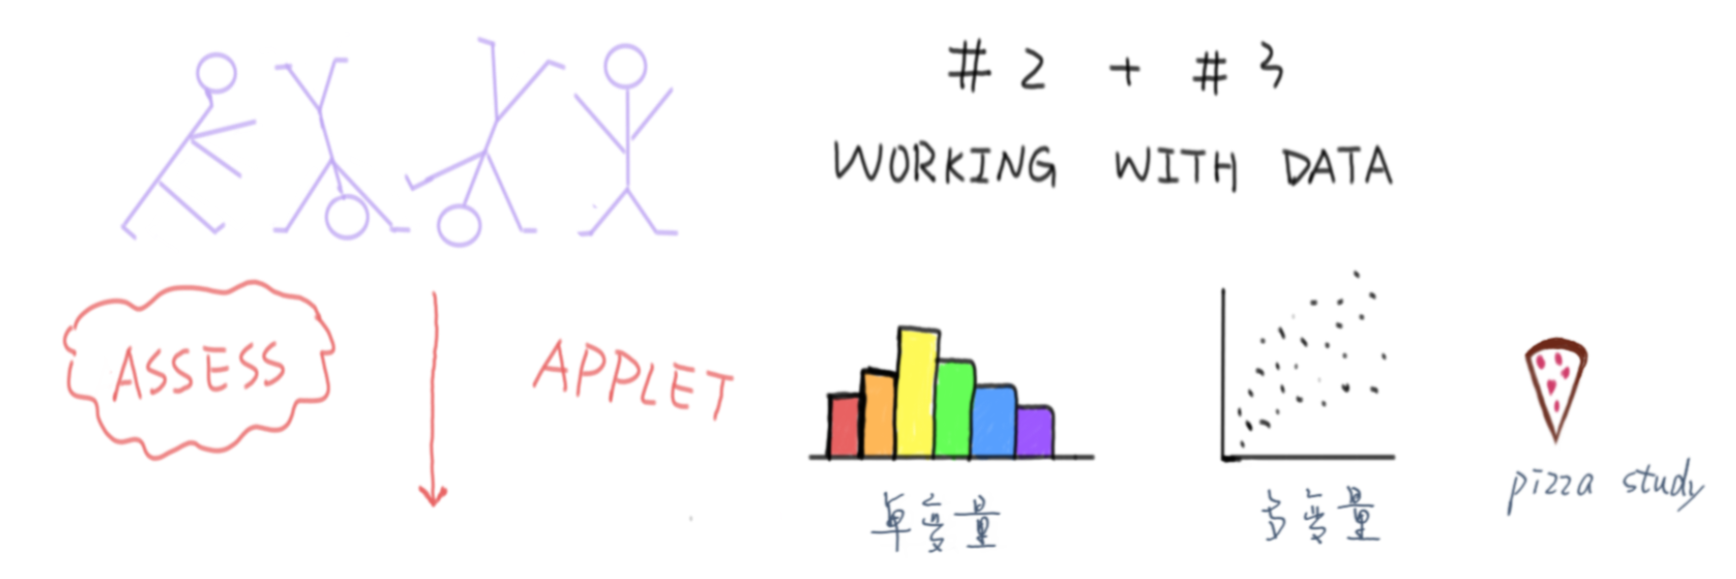 # 2 + # 3
WORKING WITH DATA
ASSESS
APPLET
单变量
多变量
pizza study